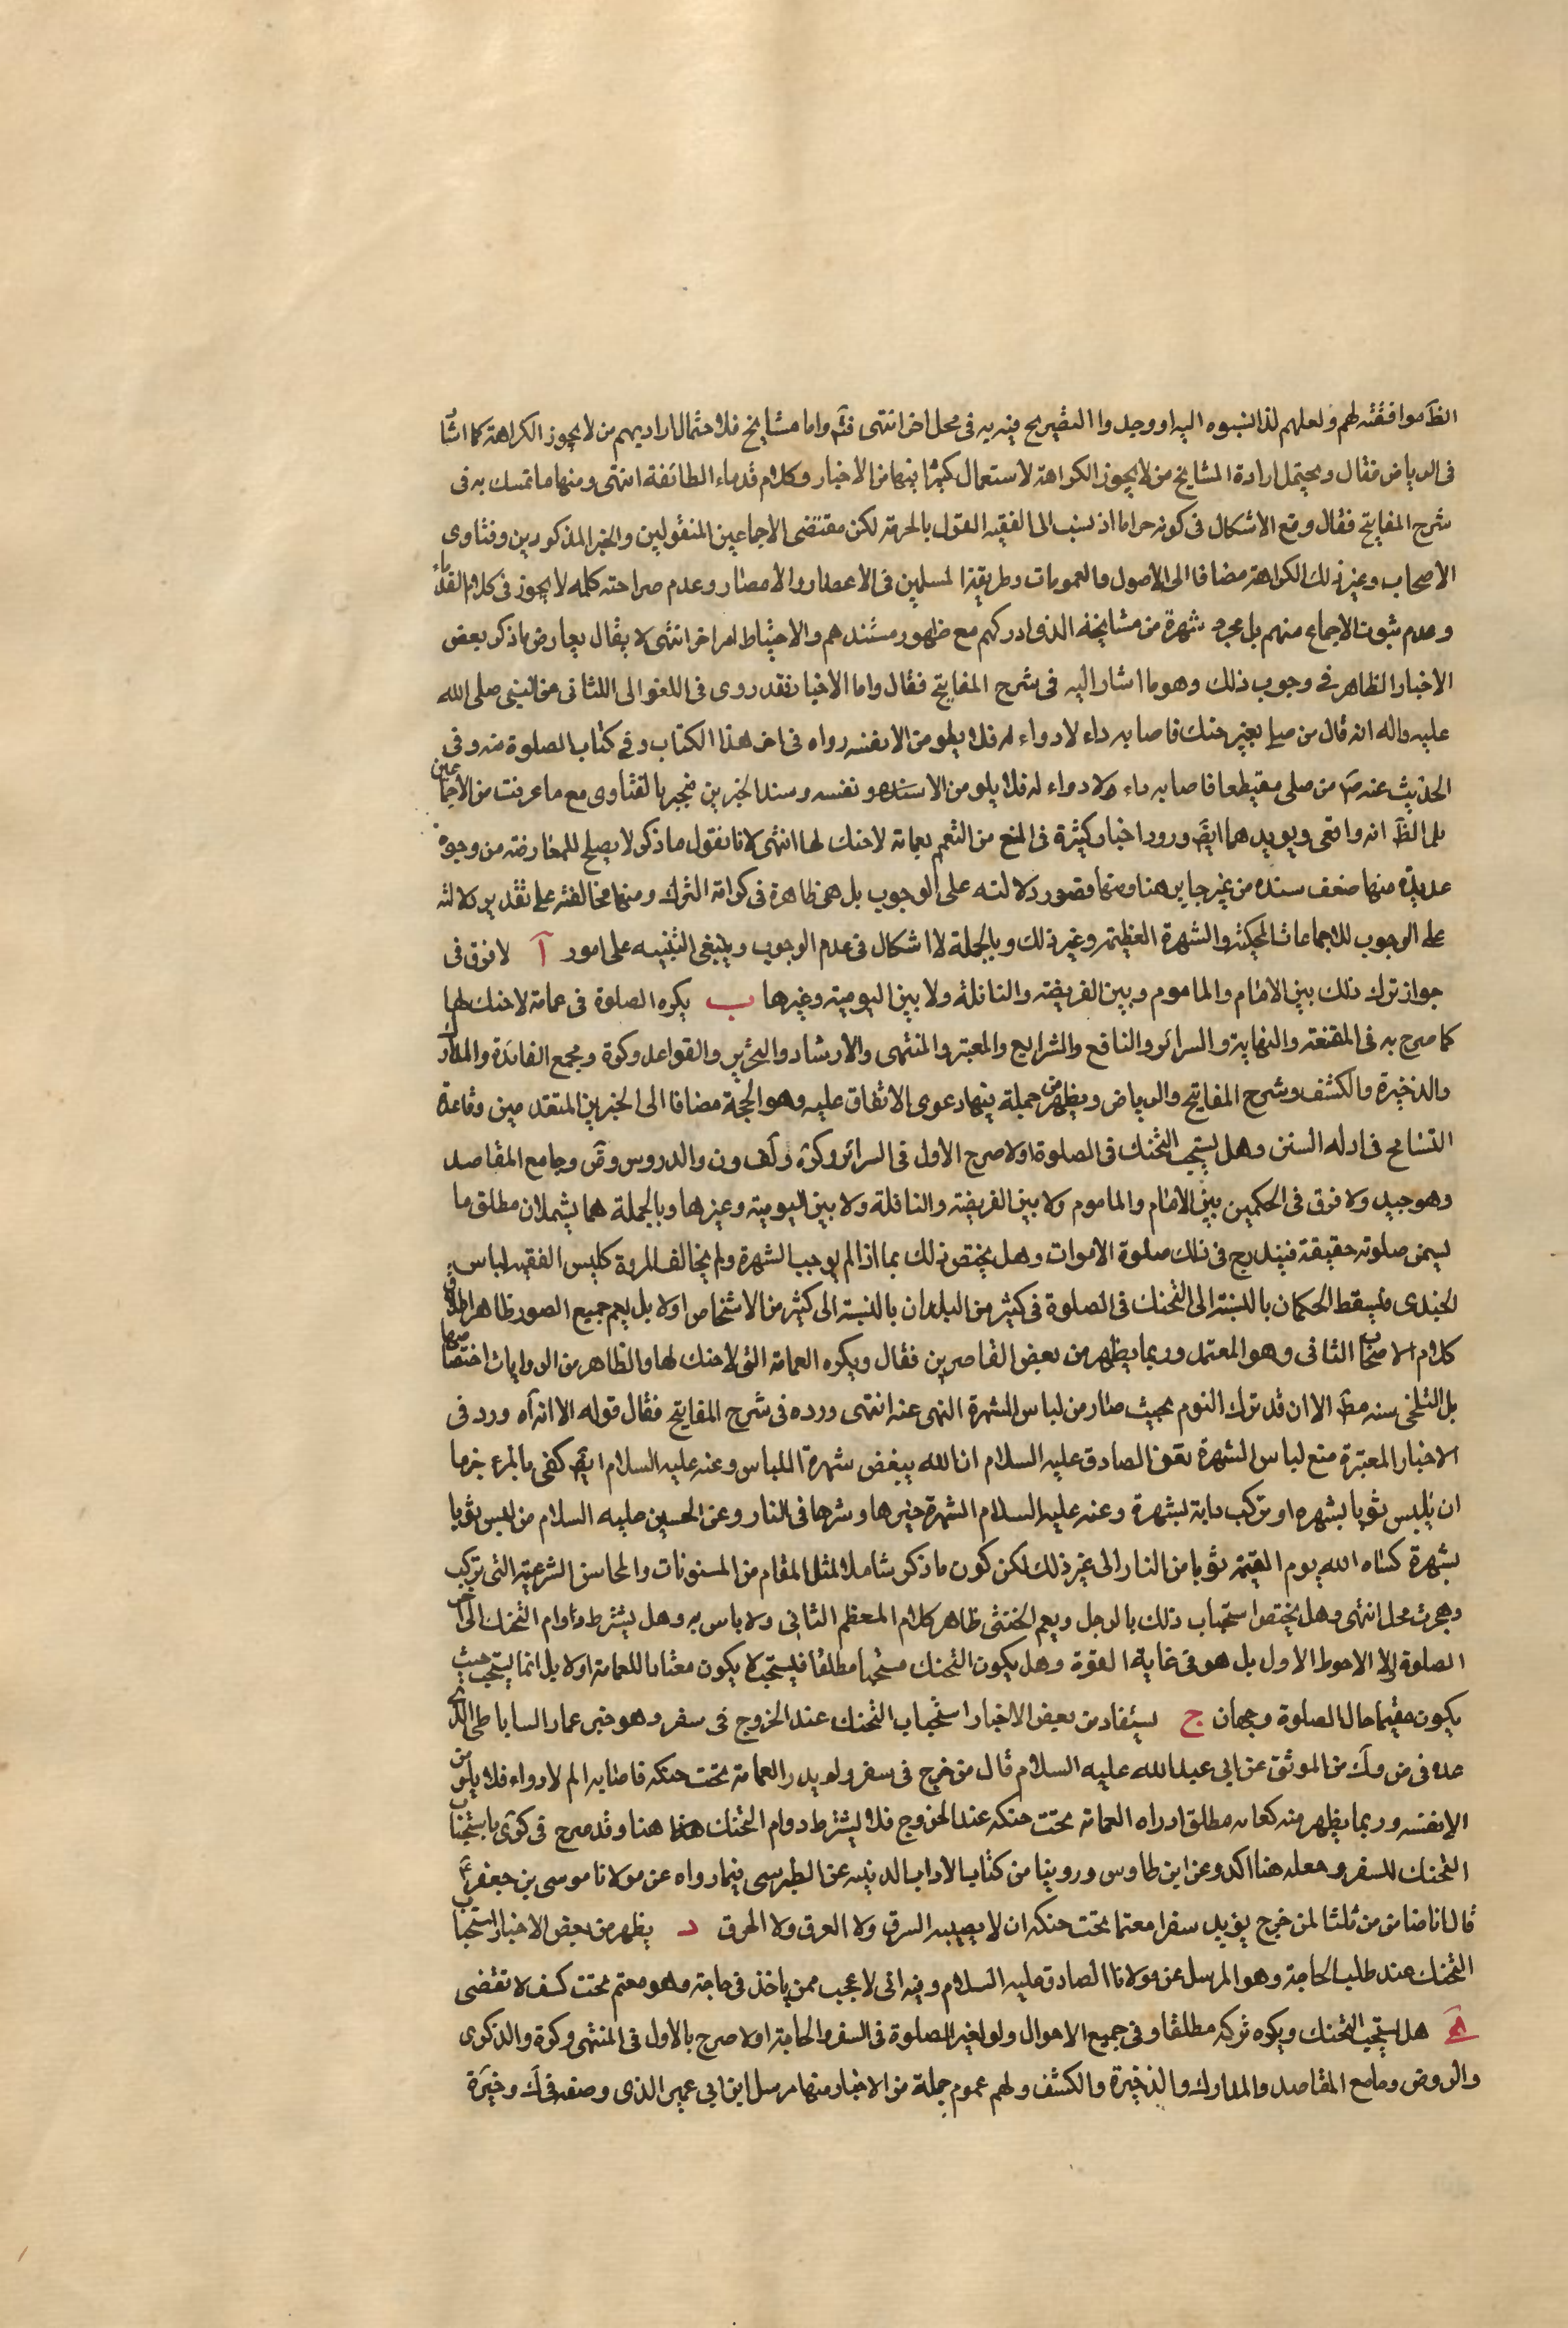 الظَ موافقته لهم ولعلهم لذا نسبوه اليه او وجدوا التصريح فيه به فى محل اخر انتهى فتَم واما مشايخ فلاحتمال اراديهم من لا يجوز الكراهة كما اشا
فى الرياض فقال ويحتمل ارادة المشايخ من لا يجوز الكراهة لاستعمال كثيرا بينها من الاخبار وكلام قدماء الطائفة انتهى ومنها ما تمسك به فى
شرح المفاتيح فقال وقع الاشكال فى كونه حراما اذ نسب الى الفقيه القول بالحرمة لكن مقتضى الاجماعين المنقولين والخبر المذكورين وفتاوى
الاصحاب وغير ذلك الكراهة مضافا الى الاصول والعمومات وطريقة المسلمين فى الاعصار والامصار وعدم صراحته كلمه لا يجوز فى كلام القدماء
وعدم ثبوت الاجماع منهم بل مجرد شهرة من مشايخه الذى ادركهم مع ظهور مستندهم والاحتياط امر اخر انتهى لا يقال يعارض ما ذكر بعض
الاخبار الظاهر فى وجوب ذلك وهو ما اشار اليه فى شرح المفاتيح فقال واما الاخبار فقد روى فى الغوالى اللئالى عن النبى صلى الله
عليه واله انه قال من صلى بغير حنك فاصابه داء لا دواء له فلا يلومن الا نفسه رواه فى اخر هذا الكتاب وفى كتاب الصلوة منه وفى
الحديث عنه صَ من صلى مقتطعا فاصابه داء ولا دواء له فلا يلومن الا سنده ونفسه وسند الخبرين منجبر بالفتاوى مع ما عرفت من الاجماعين
بل الظَ انه واقعى ويويدهما ايضَ ورود اخبار كثيرة فى المنع من التعمم بعمامة لا حنك لها انتهى لانا نقول ما ذكر لا يصلح للمعارضة من وجوه
عديدة منها ضعف سنده من غير جابر هنا ومنها قصور دلالته على الوجوب بل هى ظاهرة فى كراهة الترك ومنها مخالفته على تقدير دلالته
على الوجوب للاجماعات المحكية والشهرة العظيمة وغير ذلك وبالجملة لا اشكال فى عدم الوجوب وينبغى التنبيه على امور آ لا فرق فى
جواز ترك ذلك بين الامام والماموم وبين الفريضة والنافلة ولا بين اليومية وغيرها ب يكره الصلوة فى عمامة لا حنك لها
كما صرح به فى المقنعة والنهاية والسرائر والنافع والشرايع والمعتبر والمنتهى والارشاد والتحرير والقواعد وكرة ومجمع الفائدة والمدارك
والذخيرة والكشف وشرح المفاتيح والرياض ويظهر من جملة بينها دعوى الاتفاق عليه وهو الحجة مضافا الى الخبرين المتقدمين وقاعدة
التسامح فى ادله السنن وهل يستحب التحنك فى الصلوة او لا صرح الاول فى السرائر وكرة ولَف ون والدروس وصَ وجامع المقاصد
وهو جيد ولا فرق فى الحكمين بين الامام والماموم ولا بين الفريضة والنافلة ولا بين اليومية وغيرها وبالجملة هما يشملان مطلق ما
ليسمى صلوته حقيقة فيندرج فى ذلك صلوة الاموات وهل يختص ذلك بما اذا لم يوجب الشهرة ولم يخالف المروة كلبس الفقيه لباس
لجندى فيسقط الحكمان بالنسبة الى التحنك فى الصلوة فى كثير من البلدان بالنسبة الى كثير من الاشخاص او لا بل يعم جميع الصور ظاهر اطلاق
كلام الاصحاب الثانى وهو المعتمد وربما يظهر من بعض القاصرين فقال ويكره العمامة التى لا حنك لها والظاهر من الروايات اختصاصها
بل التلحى سنه مطَ الا ان قد ترك اليوم بحيث صار من لباس الشهرة النهى عنه انتهى ورده فى شرح المفاتيح فقال قوله الا انه اه ورد فى
الاخبار المعتبرة منع لباس الشهرة فعن الصادق عليه السلام ان الله يبغض شهرة اللباس وعنه عليه السلام ايضَ كفى بالمرء خزيا
ان يلبس ثوبا يشهره او يركب دابة لشهرة وعنه عليه السلام الشهرة خيرها وشرها فى النار وعن الحسين عليه السلام من لبس ثوبا
يشهرة كساه الله يوم القيمة ثوبا من النار الى غير ذلك لكن كون ما ذكر شاملا لمثل المقام من المسنونات والمحاسن الشرعية التى تركب
وهجرت محل انتهى وهل يختص استحباب ذلك بالرجل ويعم الخنثى ظاهر كلام المعظم الثانى ولا باس به وهل يشترط دوام التحنك الى اخر
الصلوة او لا الاحوط الاول بل هو فى غاية القوة وهل يكون التحنك مستحبا مطلقا فيستحب لا يكون معتادا للعمامة او لا بل انما يستحب حيث
يكون مقيما حال الصلوة وجهان ج يستفاد من بعض الاخبار استحباب التحنك عند الخروج فى سفر وهو خبر عمار الساباطى الذى
عده فى ض ولَك من الموثق عن ابى عبد الله عليه السلام قال من خرج فى سفر ولم يدر العمامة تحت حنكه فاصابه الم لا دواء فلا يلومن
الا نفسه وربما يظهر منه كفاية مطلق ادراه العمامة تحت حنكه عند الخروج فلا يشترط دوام التحنك هنا وقد صرح فى كرى باستحباب
التحنك للسفر وجعله هنا اكد وعن ابن طاوس وروينا من كتاب الاداب الدينيه عن الطبرسى فيما رواه عن مولانا موسى بن جعفر عَ
قال انا ضامن من ثلثا لمن خرج يريد سفرا معتما تحت حنكه ان لا يصيبه السرق ولا الغرق ولا الحرق د يظهر من بعض الاخبار استحباب
التحنك عند طلب الحاجة وهو المرسل عن مولانا الصادق عليه السلام وفيه انى لاعجب ممن ياخذ فى حاجة وهو معتم تحت كيف لا تقضى
هَ هل يستحب التحنك ويكره تركه مطلقا وفى جميع الاحوال ولو لغير الصلوة فى السفر والحاجة او لا صرح بالاول فى المنتهى وكرة والذكرى
والروض وجامع المقاصد والمدارك والذخيرة والكشف ولهم عموم جملة من الاخبار منها مرسل ابن ابى عمير الذى وصفه فى لَك وخيَرة